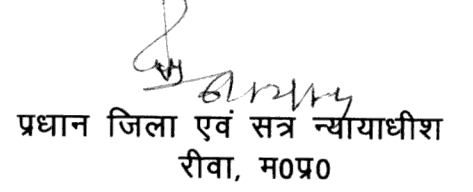 प्रधान जिला एवं सत्र न्यायाधीश
रीवा, म0प्र0